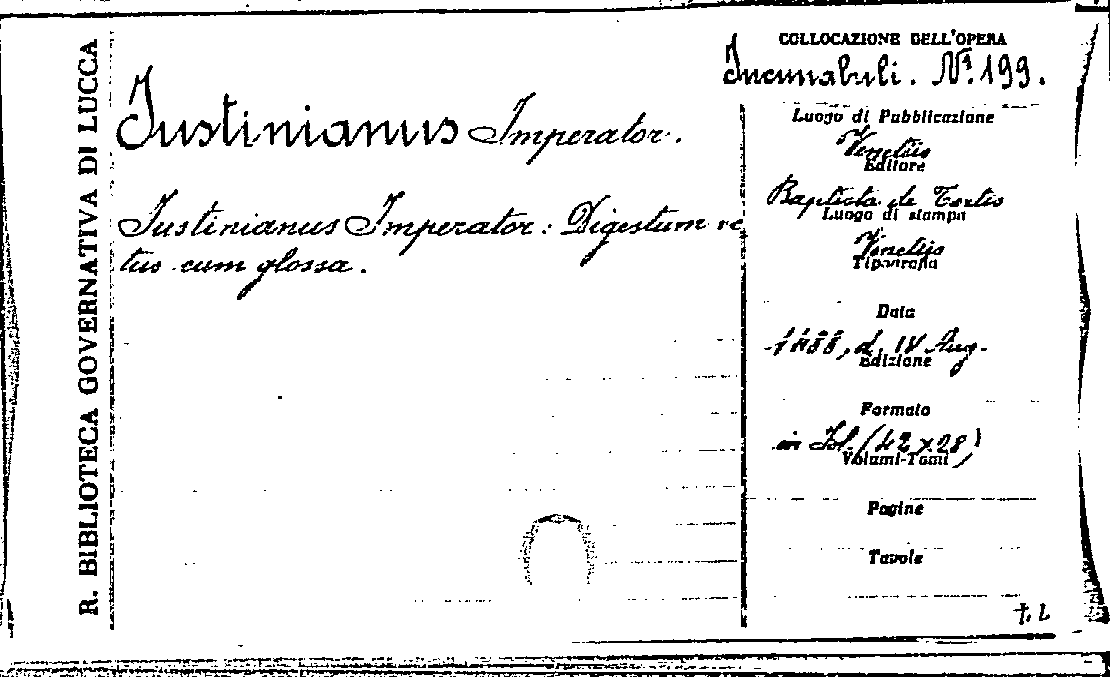 R. BIBLIOTECA GOVERNATIVA DI LUCCA
Iustinianus Imperator.
Iustinianus Imperator: Digestum ve
tus cum glossa.
COLLOCAZIONE DELL'OPERA
Incunabuli. Nº 199.
Luogo di Pubblicazione
Venetiis
Editore
Baptista de Tortis
Luogo di stampa
Venetiis
Tipografia
Data
1488, d. IV Aug.
Edizione
Formato
in fol. (42x28)
Volumi-Tomi
Pagine
Tavole